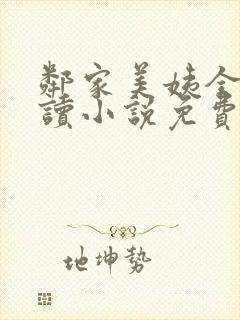 鄰家美姨全
讀小說免費
地坤勢